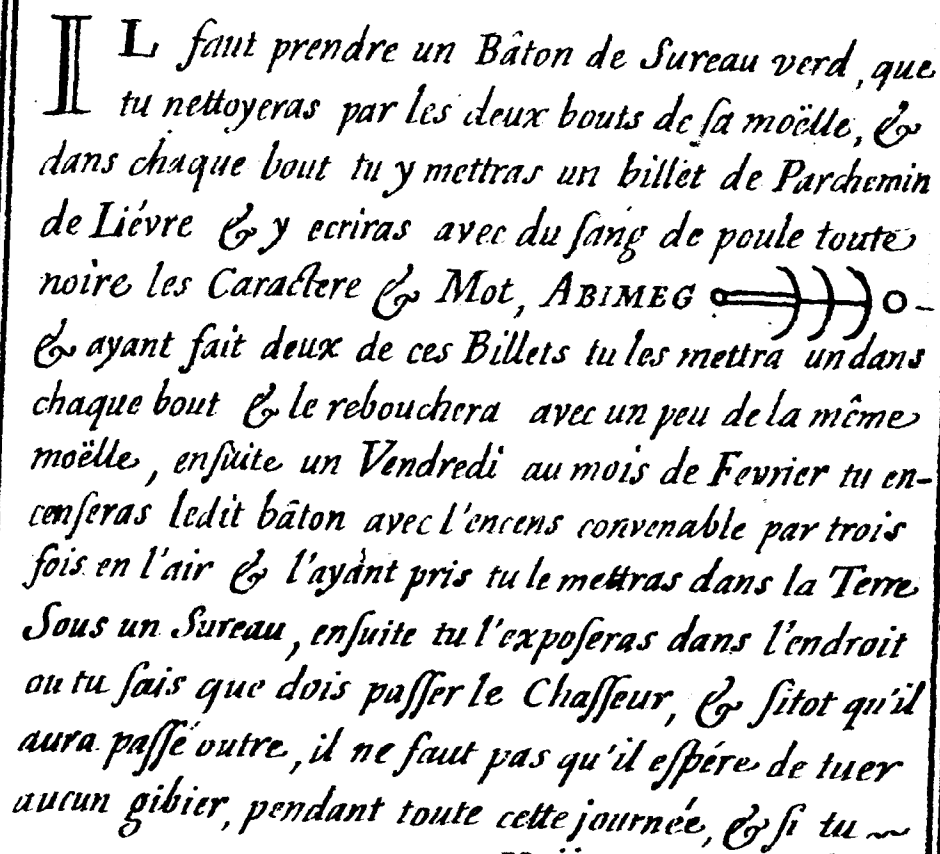 IL faut prendre un Bâton de Sureau verd, que
tu nettoyeras par les deux bouts de sa moëlle, &
dans chaque bout tu y mettras un billet de Parchemin
de Liévre & y ecriras avec du sang de poule toute
noire les Caractere & Mot, ABIMEG
& ayant fait deux de ces Billets tu les mettra un dans
chaque bout & le rebouchera avec un peu de la même
moëlle, ensuite un Vendredi au mois de Fevrier tu en-
censeras ledit bâton avec l'encens convenable par trois
fois en l'air & l'ayant pris tu le mettras dans la Terre
Sous un Sureau, ensuite tu l'exposeras dans l'endroit
ou tu sais que dois passer le Chasseur, & sitot qu'il
aura passé outre, il ne faut pas qu'il espére de tuer
aucun gibier, pendant toute cette journée, & si tu